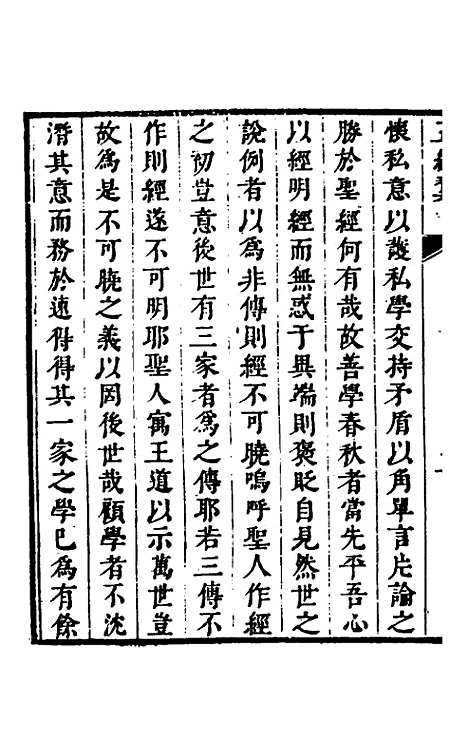 懷私意以護私學交持矛盾以角單言片論之
勝於聖經何有哉故善學春秋者當先平吾心
以經明經而無惑于異端則褒貶自見然世之
說例者以為非傳則經不可曉嗚呼聖人作經
之初豈意後世有三家者為之傳耶若三傳不
作則經遂不可明耶聖人寓王道以示萬世豈
故為是不可曉之義以罔後世哉顧學者不沈
潛其意而務於速得得其一家之學已為有餘